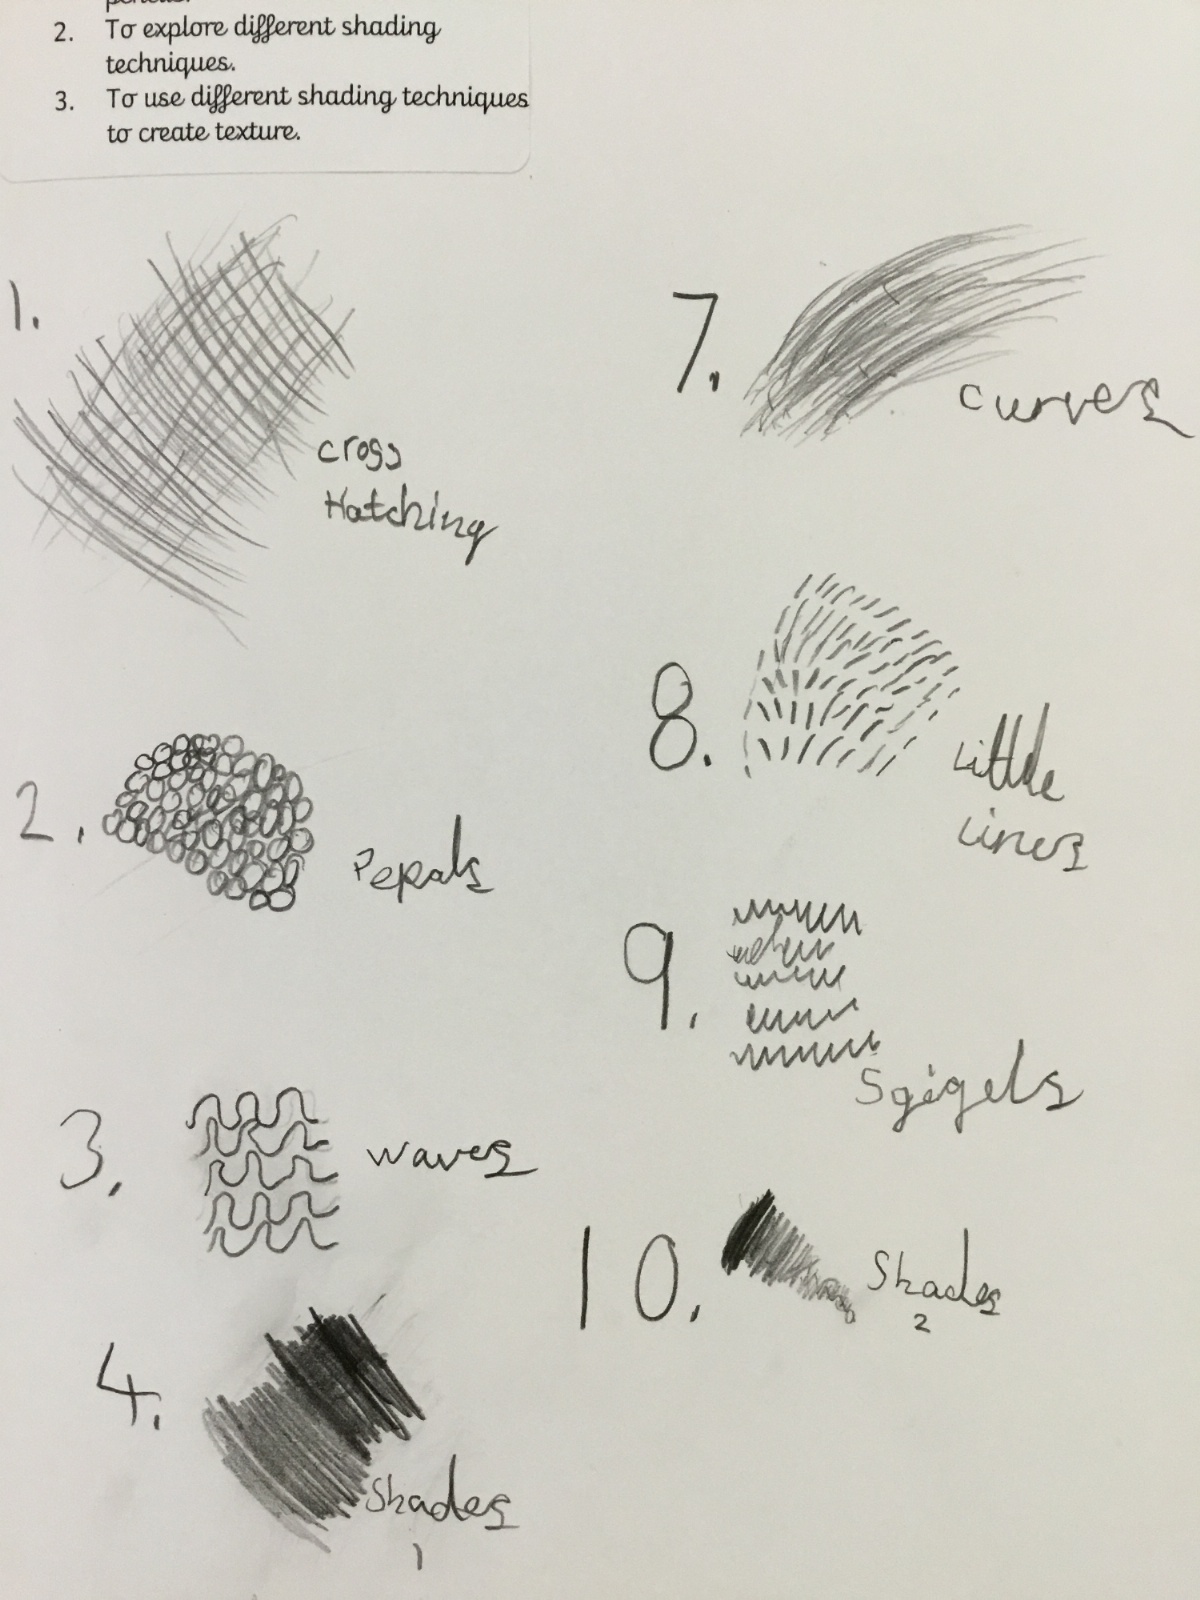 2. To explore different shading
techniques.
3. To use different shading techniques
to create texture.
1.
cross
Hatching
2.
Pepals
3.
waves
4.
Shades
1
7.
curves
8.
Little
Lines
9.
Sgigels
10.
Shades
2